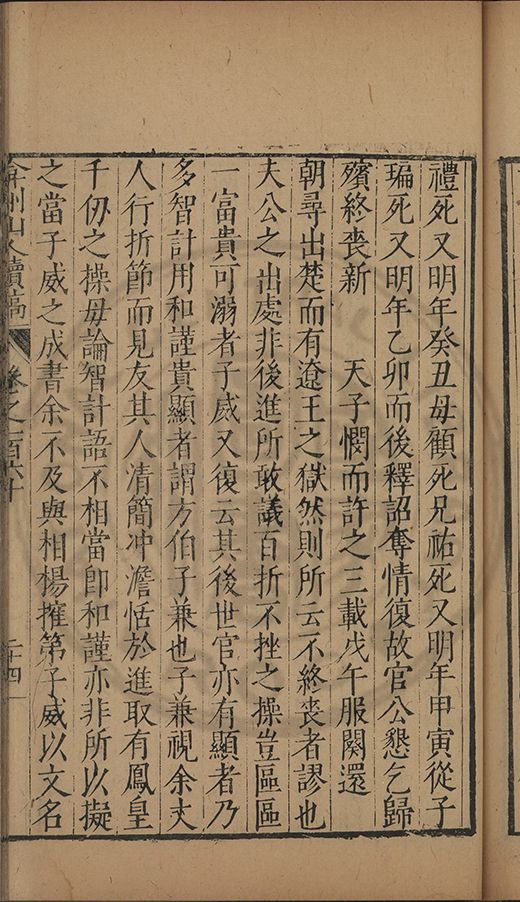 禮死又明年癸丑母顧死兄祐死又明年甲寅從子
㻞死又明年乙卯而後釋詔奪情復故官公懇乞歸
殯終喪新　天子憫而許之三載戊午服闋還
朝尋出楚而有遼王之獄然則所云不終喪者謬也
夫公之出處非後進所敢議百折不挫之操豈區區
一富貴可溺者子威又復云其後世官亦有顯者乃
多智計用和謹貴顯者謂方伯子兼也子兼視余丈
人行折節而見友其人清簡冲澹恬於進取有鳳皇
千仞之操毋論智計語不相當卽和謹亦非所以擬
之當子威之成書余不及與相楊搉第子威以文名
弇州山人續稿　卷之一百六十　二十四